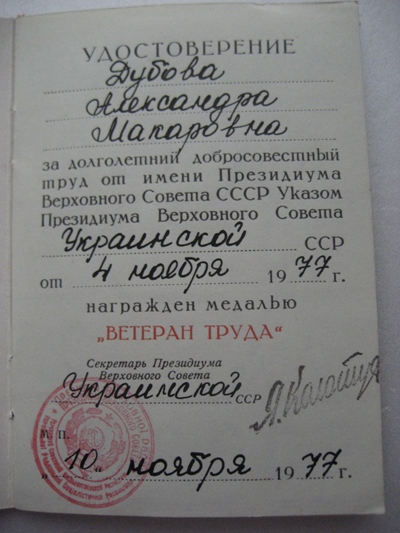 УДОСТОВЕРЕНИЕ
Дубова
Александра
Макаровна
за долголетний добросовестный
труд от имени Президиума
Верховного Совета СССР Указом
Президиума Верховного Совета
Украинской ССР
от 4 ноября 1977 г.
награжден медалью
„ВЕТЕРАН ТРУДА“
Секретарь Президиума
Верховного Совета
Украинской ССР
М. П.
„10„ ноября 1977 г.